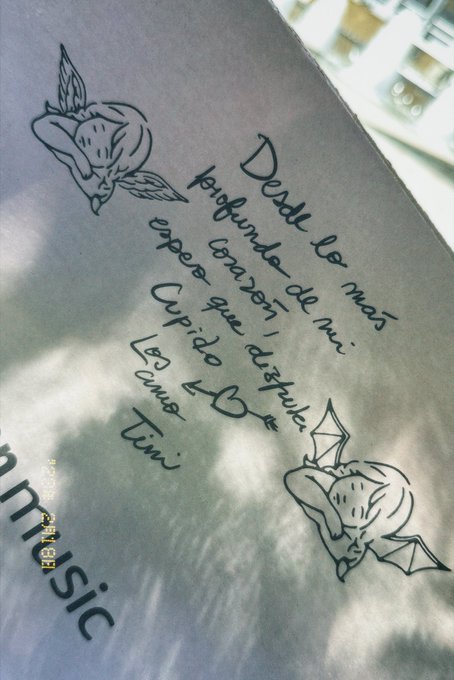 Desde lo más
profundo de mi
corazón,
espero que disfruten
Cupido
Los
amo
Tini
n music